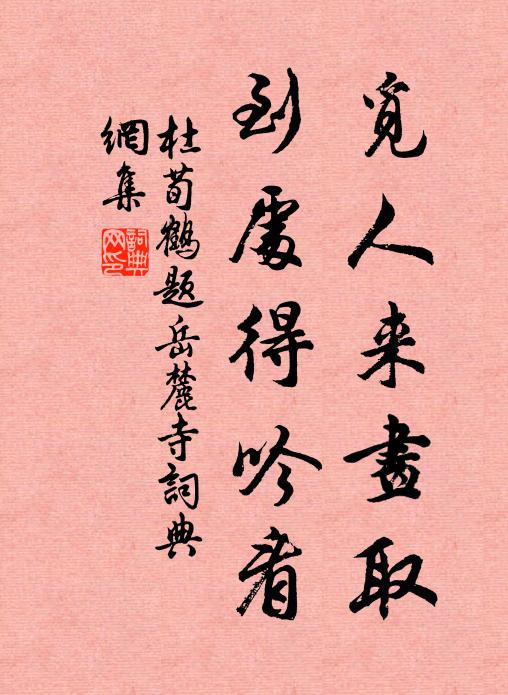 覓人来畫取
到處得吟看
杜荀鶴題岳麓寺詞典
網集
詞典網印